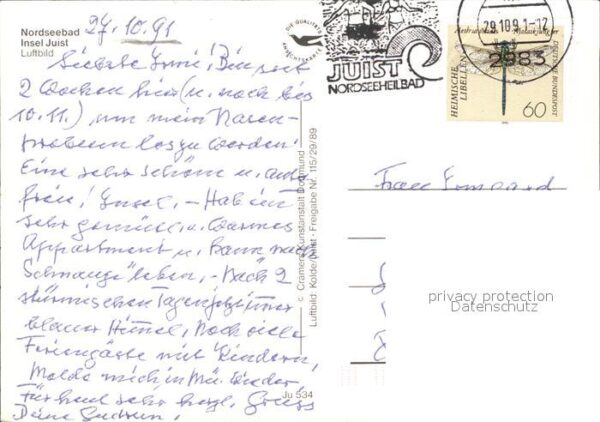 Nordseebad
Insel Juist
Luftbild
27.10.91
Liebste Irmi! Bin seit
2 Wochen hier (u. noch bis
10.11.) um mein Nasen-
problem loszuwerden.
Eine sehr schöne u. auto
freie! Insel. - Hab ein
sehr gemütl. u. warmes
Appartment u. kann nach
Schnauze leben. - Nach 2
stürmischen Tagen jetzt immer
blauer Himmel, noch viele
Feriengäste mit Kindern,
Melde mich in Mü. wieder,
Für heut sehr herzl. Grüße
Deine Gudrun!
DIE QUALITÄTS
ANSICHTSKARTE
© Cramers Kunstanstalt Dortmund
Luftbild: Kolde/Juist · Freigabe Nr. 115/29/89
Ju 534
JUIST
NORDSEEHEILBAD
29.10.91-12
2983
HEIMISCHE
LIBELLEN
DEUTSCHE BUNDESPOST
60
Frau
privacy protection
Datenschutz